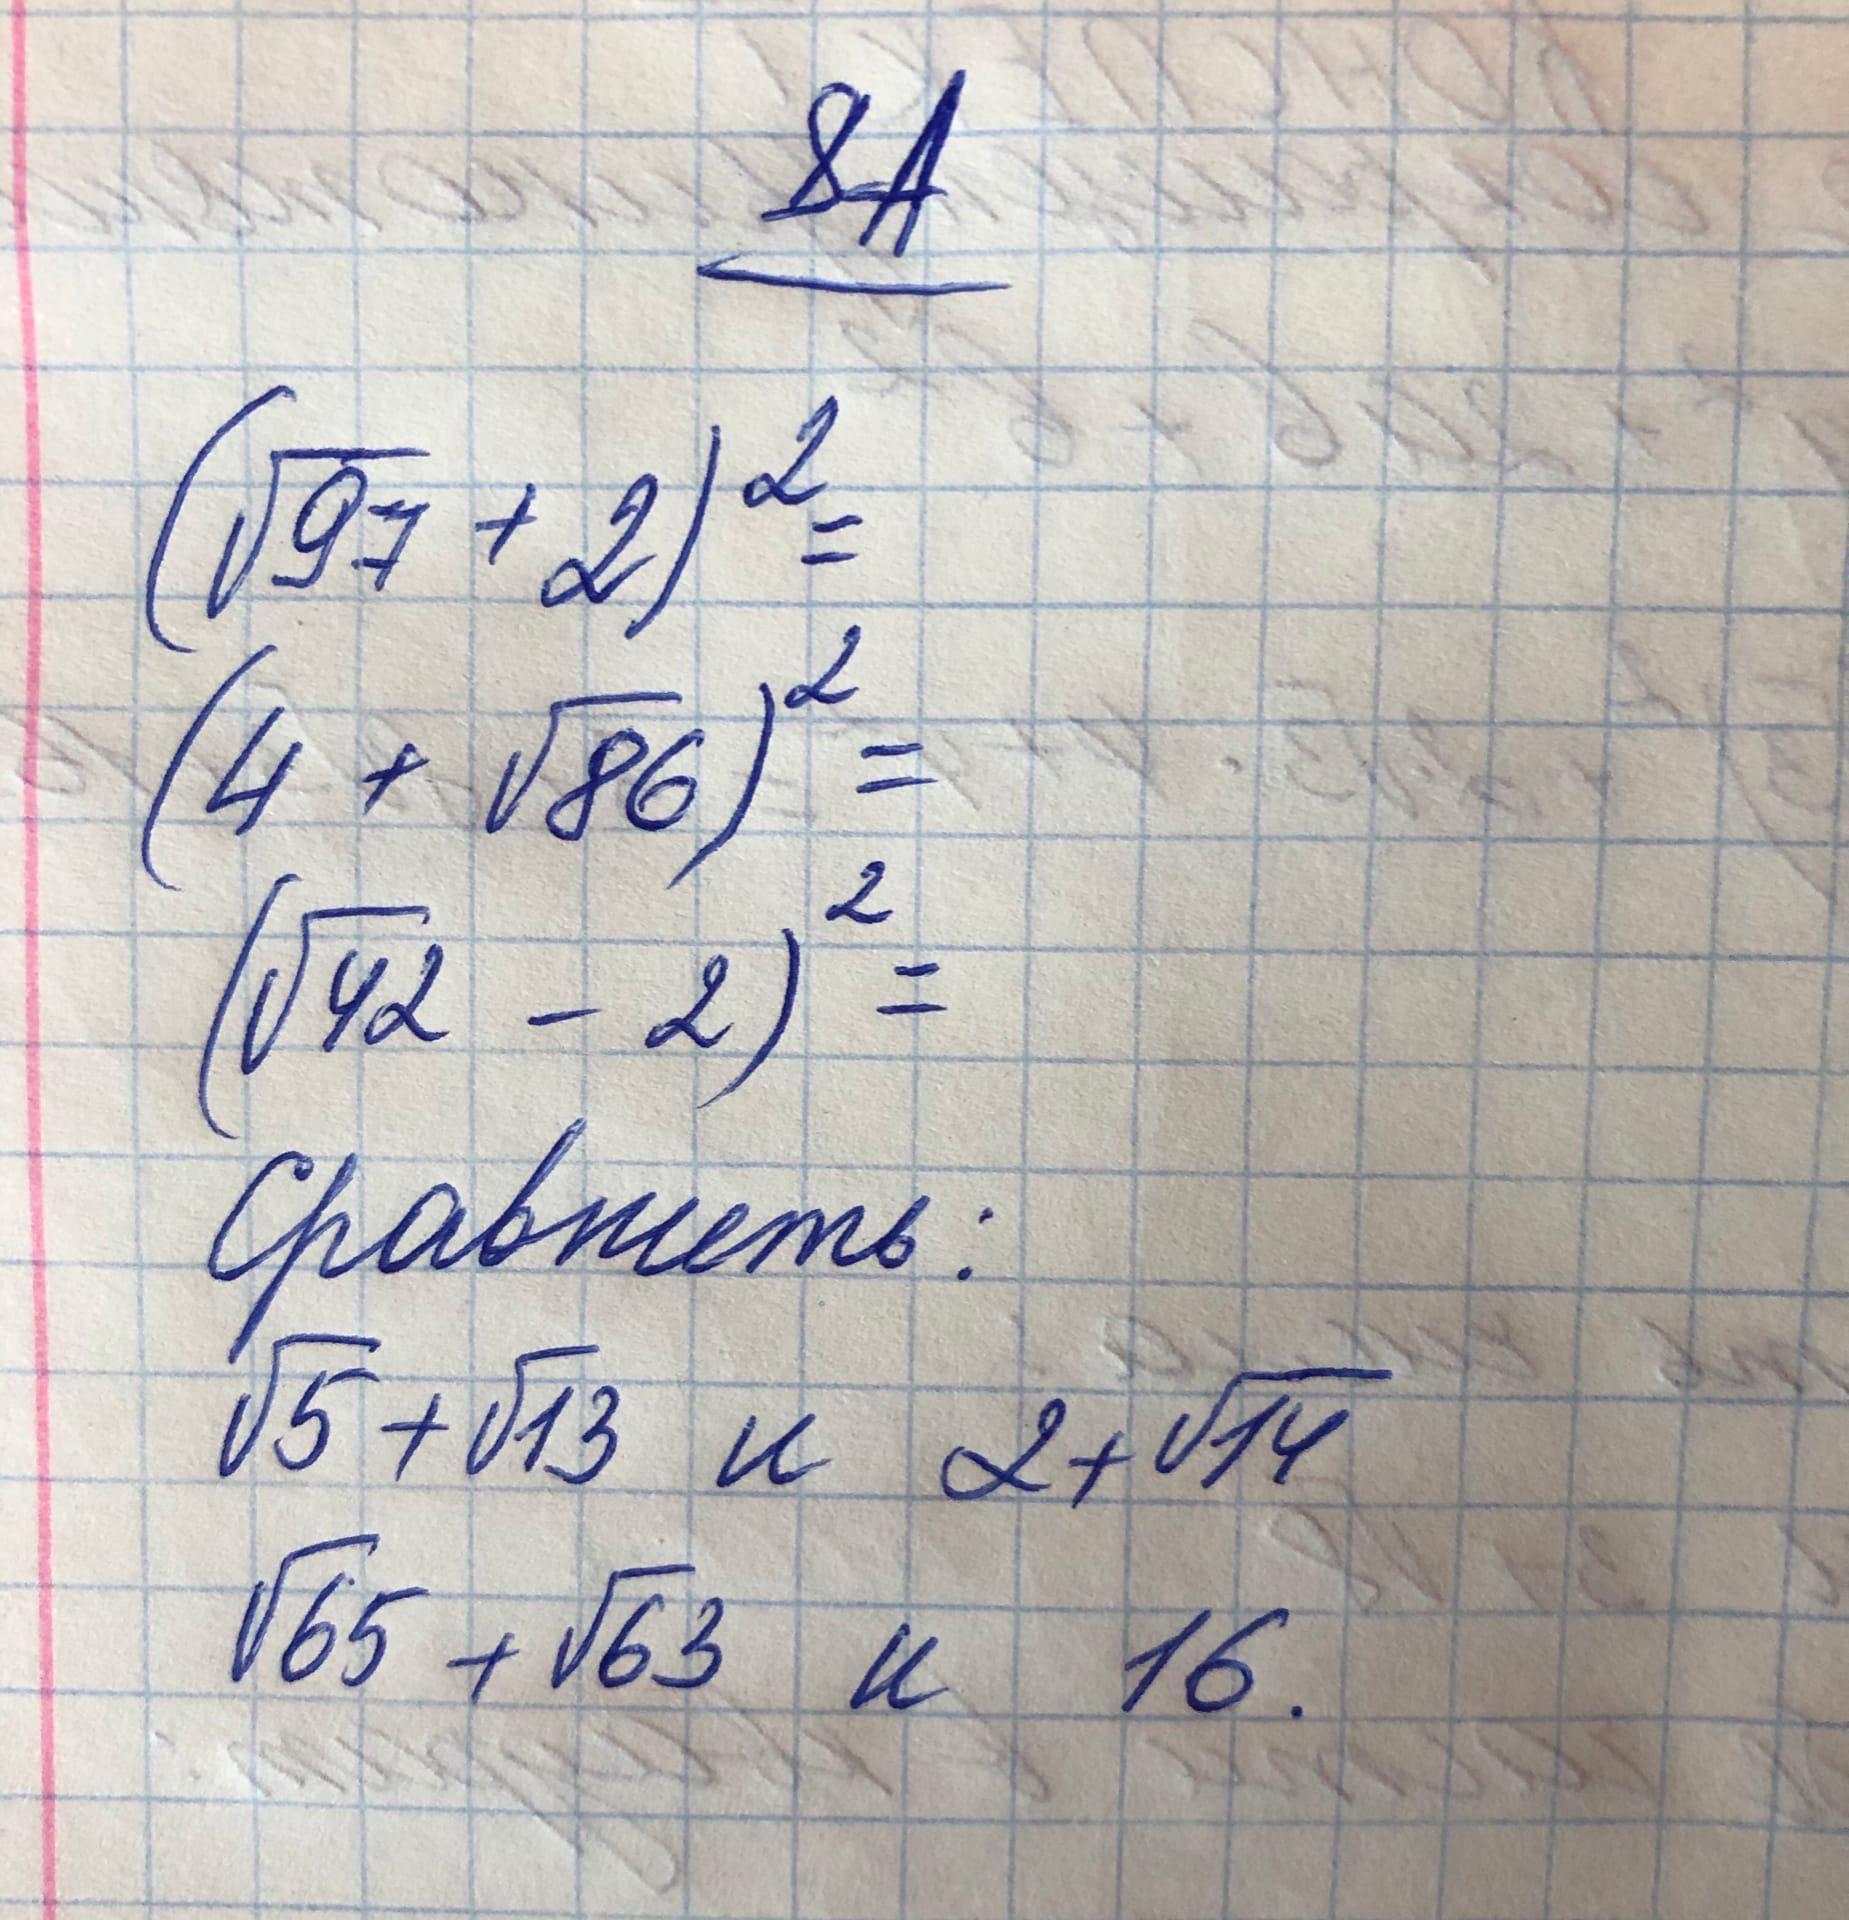 8А
(√97 + 2)² =
(4 + √86)² =
(√42 - 2)² =
Сравнить:
√5 + √13 и 2 + √14
√65 + √63 и 16.